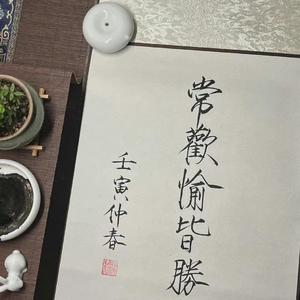 常歡愉皆勝
壬寅仲春